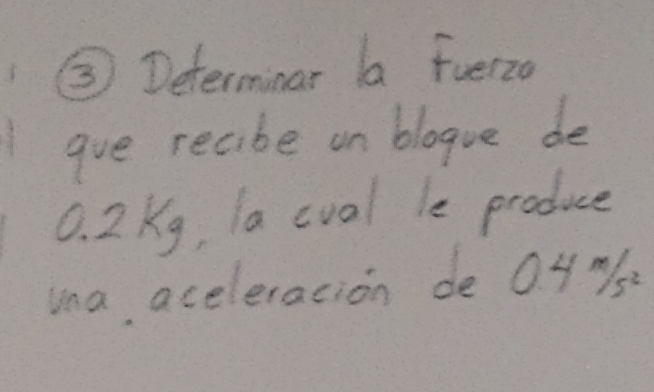 ③ Determinar la Fuerza
que recibe un bloque de
0.2 Kg, la cual le produce
una. aceleración de 0.4 m/s²